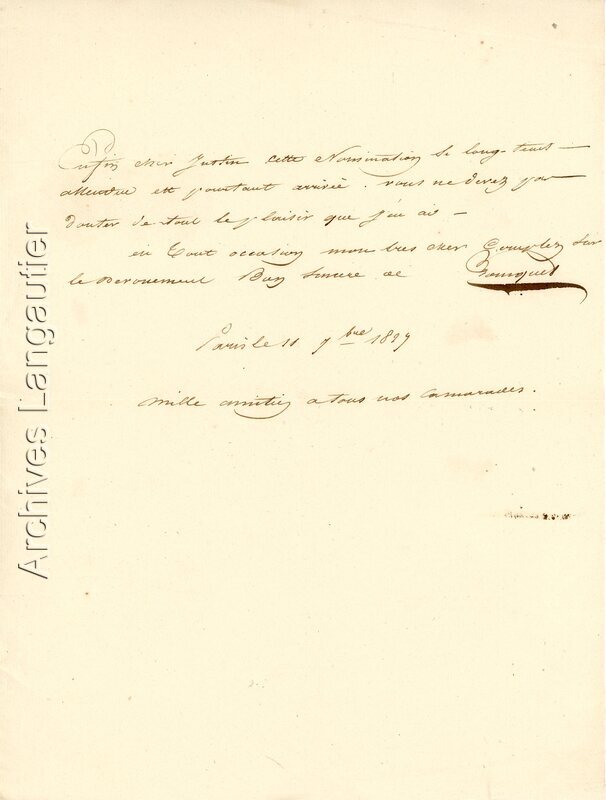 Enfin cher Justin cette Nomination si long-tems
attendue est pourtant arrivée. vous ne devez pas
douter de tout le plaisir que j'en ai
en tout occasion mon bien cher Comptez sur
le Dévouement Bien Sincère de Bouquet
Paris le 11 7bre 1827
mille amitiés a tous nos Camarades.
Archives Langautier